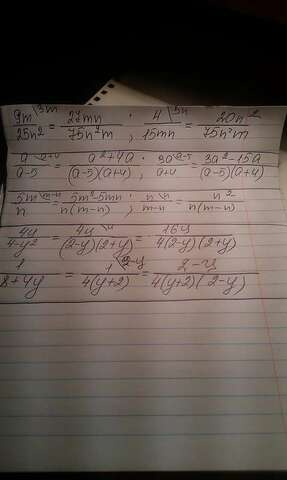 9m\3m / 25n² = 27mn / 75n²m ; 4\5n / 15mn = 20n² / 75n²m
a\a+4 / a-5 = a²+4a / (a-5)(a+4) ; 3a\a-5 / a+4 = 3a²-15a / (a-5)(a+4)
5m\m-n / n = 5m²-5mn / n(m-n) ; n\n / m-n = n² / n(m-n)
4y / 4-y² = 4y\4 / (2-y)(2+y) = 16y / 4(2-y)(2+y)
1 / 8+4y = 1\2-y / 4(y+2) = 2-y / 4(y+2)(2-y)